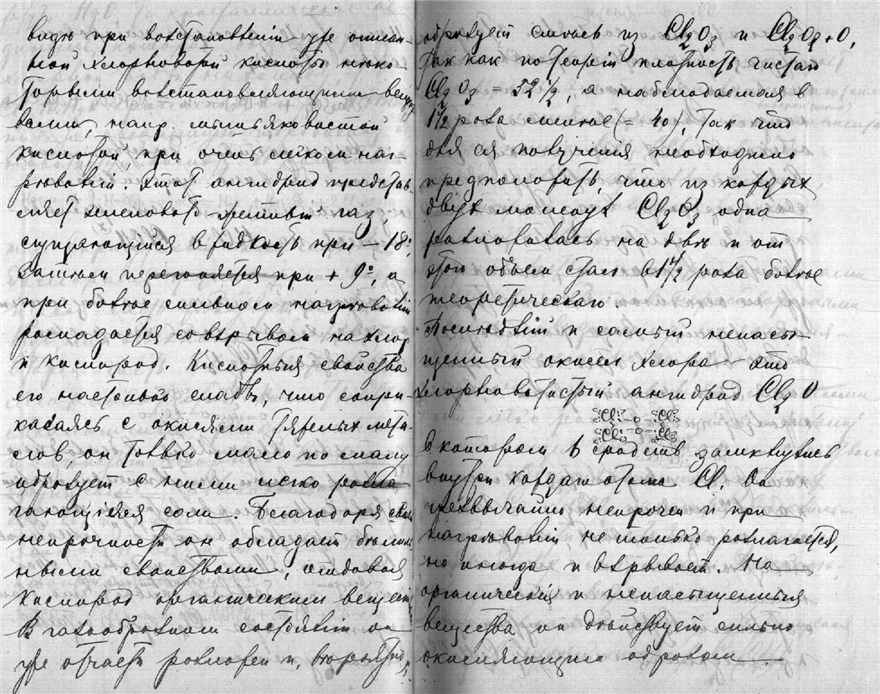 видѣ при возстановленіи уже описан-
ной хлорноватой кислоты нѣко-
торыми возстановляющими вещест-
вами, напр. мышьяковистой
кислотой при очень легкомъ наг-
рѣваніи. Этотъ ангидридъ представ-
ляетъ зеленовато-желтый газъ
сгущающійся в жидкость при – 18°.
Затѣмъ перегоняется при + 9°, а
при болѣе сильномъ нагрѣваніи
распадается со взрывомъ на хлор
и кислород. Кислотныя свойства
его настолько слабы, что сопри-
касаясь с окислами тяжелыхъ метал-
ловъ, он только мало по малу
образует с ними легко разла-
гающіяся соли. Благодаря своей
непрочности он обладает бѣлиль-
ными свойствами, отдавая
кислород органическим вещест.
В газообразном состояніи он
уже отчасти разложен и, вѣроятно,
образует смѣсь из Cl₂O₃ и Cl₂O₂+O,
так как по теоріи плотность чистаго
Cl₂O₃ = 59½, а наблюдаемая в
1½ раза меньше (= 40), так что
для ея полученія необходимо
предположить, что из каждых
двух молекул Cl₂O₃ одна
разложилась на двѣ и от
этого объем стал в 1½ раза болѣе
теоретическаго.
Послѣдній и самый ненасы-
щенный окисел хлора – это
хлорноватистый ангидрид Cl₂O
Cl – o – Cl
Cl – o – Cl
в котором 6 сродств замкнулись
внутри каждаго атома Cl. Он
чрезвычайно непрочен и при
нагрѣваніи не только разлагается,
но иногда и взрывает. На
органическія и ненасыщенныя
вещества он дѣйствует сильно
окисляющим образом.